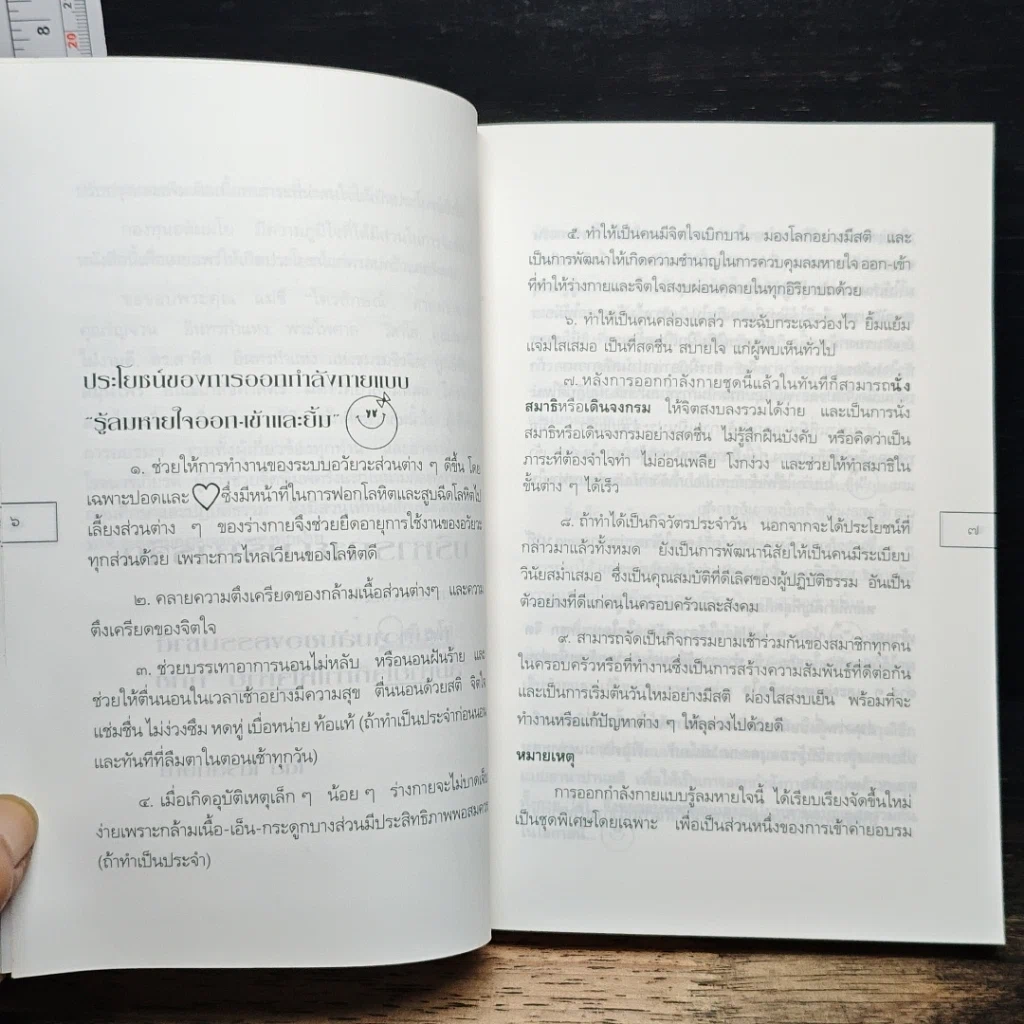 8
20
ประโยชน์ของการออกกำลังกายแบบ
"รู้ลมหายใจออก-เข้าและยิ้ม"
๑. ช่วยให้การทำงานของระบบอวัยวะส่วนต่าง ๆ ดีขึ้น โดย
เฉพาะปอดและ ซึ่งมีหน้าที่ในการฟอกโลหิตและสูบฉีดโลหิตไป
เลี้ยงส่วนต่าง ๆ ของร่างกายจึงช่วยยืดอายุการใช้งานของอวัยวะ
ทุกส่วนด้วย เพราะการไหลเวียนของโลหิตดี
๒. คลายความตึงเครียดของกล้ามเนื้อส่วนต่างๆ และความ
ตึงเครียดของจิตใจ
๓. ช่วยบรรเทาอาการนอนไม่หลับ หรือนอนฝันร้าย และ
ช่วยให้ตื่นนอนในเวลาเช้าอย่างมีความสุข ตื่นนอนด้วยสติ จิตใจ
แช่มชื่น ไม่ง่วงซึม หดหู่ เบื่อหน่าย ท้อแท้ (ถ้าทำเป็นประจำก่อนนอน
และทันทีที่ลืมตาในตอนเช้าทุกวัน)
๔. เมื่อเกิดอุบัติเหตุเล็ก ๆ น้อย ๆ ร่างกายจะไม่บาดเจ็บ
ง่ายเพราะกล้ามเนื้อ-เอ็น-กระดูกบางส่วนมีประสิทธิภาพพอสมควร
(ถ้าทำเป็นประจำ)
๖
๕. ทำให้เป็นคนมีจิตใจเบิกบาน มองโลกอย่างมีสติ และ
เป็นการพัฒนาให้เกิดความชำนาญในการควบคุมลมหายใจ ออก-เข้า
ที่ทำให้ร่างกายและจิตใจสงบผ่อนคลายในทุกอิริยาบถด้วย
๖. ทำให้เป็นคนคล่องแคล่ว กระฉับกระเฉงว่องไว ยิ้มแย้ม
แจ่มใสเสมอ เป็นที่สดชื่น สบายใจ แก่ผู้พบเห็นทั่วไป
๗. หลังการออกกำลังกายชุดนี้แล้วในทันทีก็สามารถนั่ง
สมาธิหรือเดินจงกรม ให้จิตสงบลงรวมได้ง่าย และเป็นการนั่ง
สมาธิหรือเดินจงกรมอย่างสดชื่น ไม่รู้สึกฝืนบังคับ หรือคิดว่าเป็น
ภาระที่ต้องจำใจทำ ไม่อ่อนเพลีย โงกง่วง และช่วยให้ทำสมาธิใน
ขั้นต่าง ๆ ได้เร็ว
๘. ถ้าทำได้เป็นกิจวัตรประจำวัน นอกจากจะได้ประโยชน์ที่
กล่าวมาแล้วทั้งหมด ยังเป็นการพัฒนานิสัยให้เป็นคนมีระเบียบ
วินัยสม่ำเสมอ ซึ่งเป็นคุณสมบัติที่ดีเลิศของผู้ปฏิบัติธรรม อันเป็น
ตัวอย่างที่ดีแก่คนในครอบครัวและสังคม
๙. สามารถจัดเป็นกิจกรรมยามเช้าร่วมกันของสมาชิกทุกคน
ในครอบครัวหรือที่ทำงานซึ่งเป็นการสร้างความสัมพันธ์ที่ดีต่อกัน
และเป็นการเริ่มต้นวันใหม่อย่างมีสติ ผ่องใสสงบเย็น พร้อมที่จะ
ทำงานหรือแก้ปัญหาต่าง ๆ ให้ลุล่วงไปด้วยดี
หมายเหตุ
การออกกำลังกายแบบรู้ลมหายใจนี้ ได้เรียบเรียงจัดขึ้นใหม่
เป็นชุดพิเศษโดยเฉพาะ เพื่อเป็นส่วนหนึ่งของการเข้าค่ายอบรม
๗